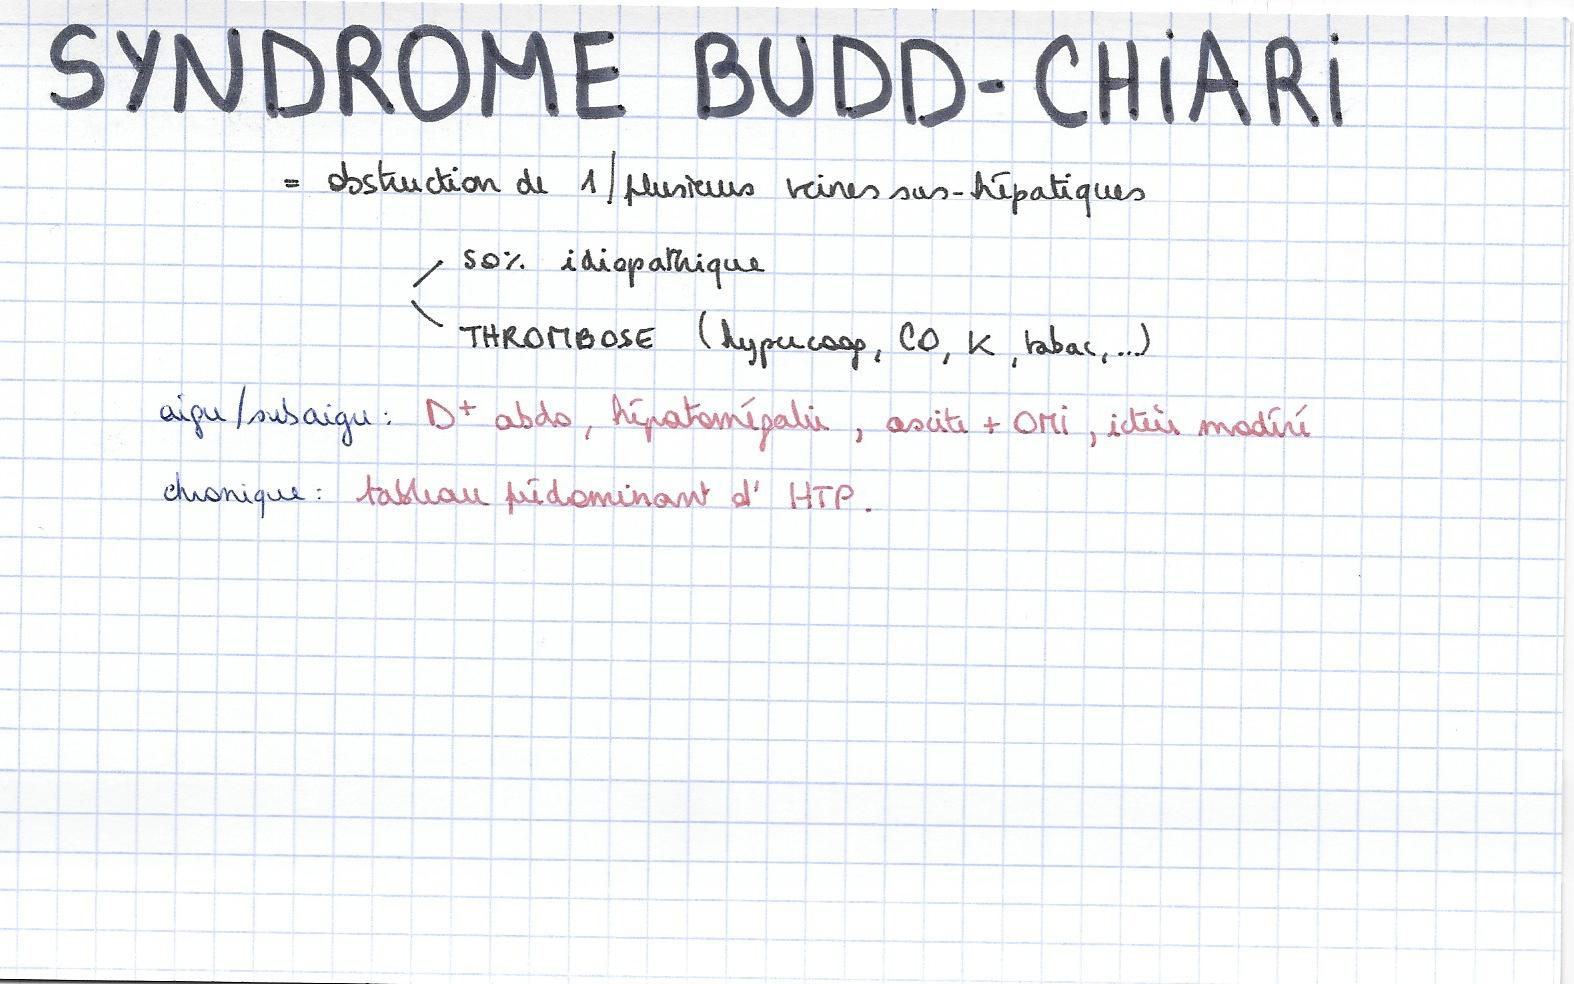 SYNDROME BUDD-CHiARi
= obstruction de 1/plusieurs veines sus-hépatiques
50% idiopathique
THROMBOSE (hypercoag, CO, K, tabac, ...)
aigu/subaigu : D+ abdo, hépatomégalie, ascite + OMi, ictère modéré
chronique : tableau prédominant d' HTP.